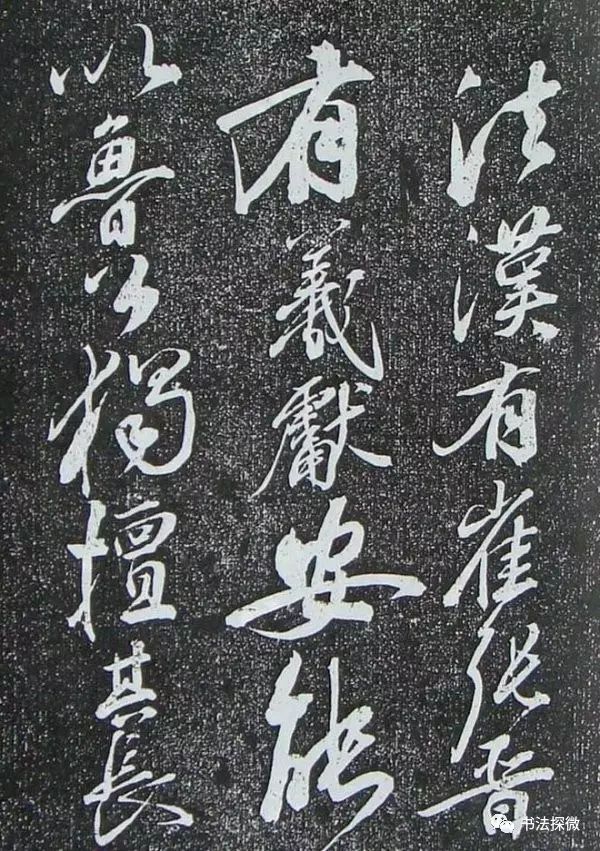 法漢有崔張晉
有羲獻安能
以魯公獨擅其長
书法探微